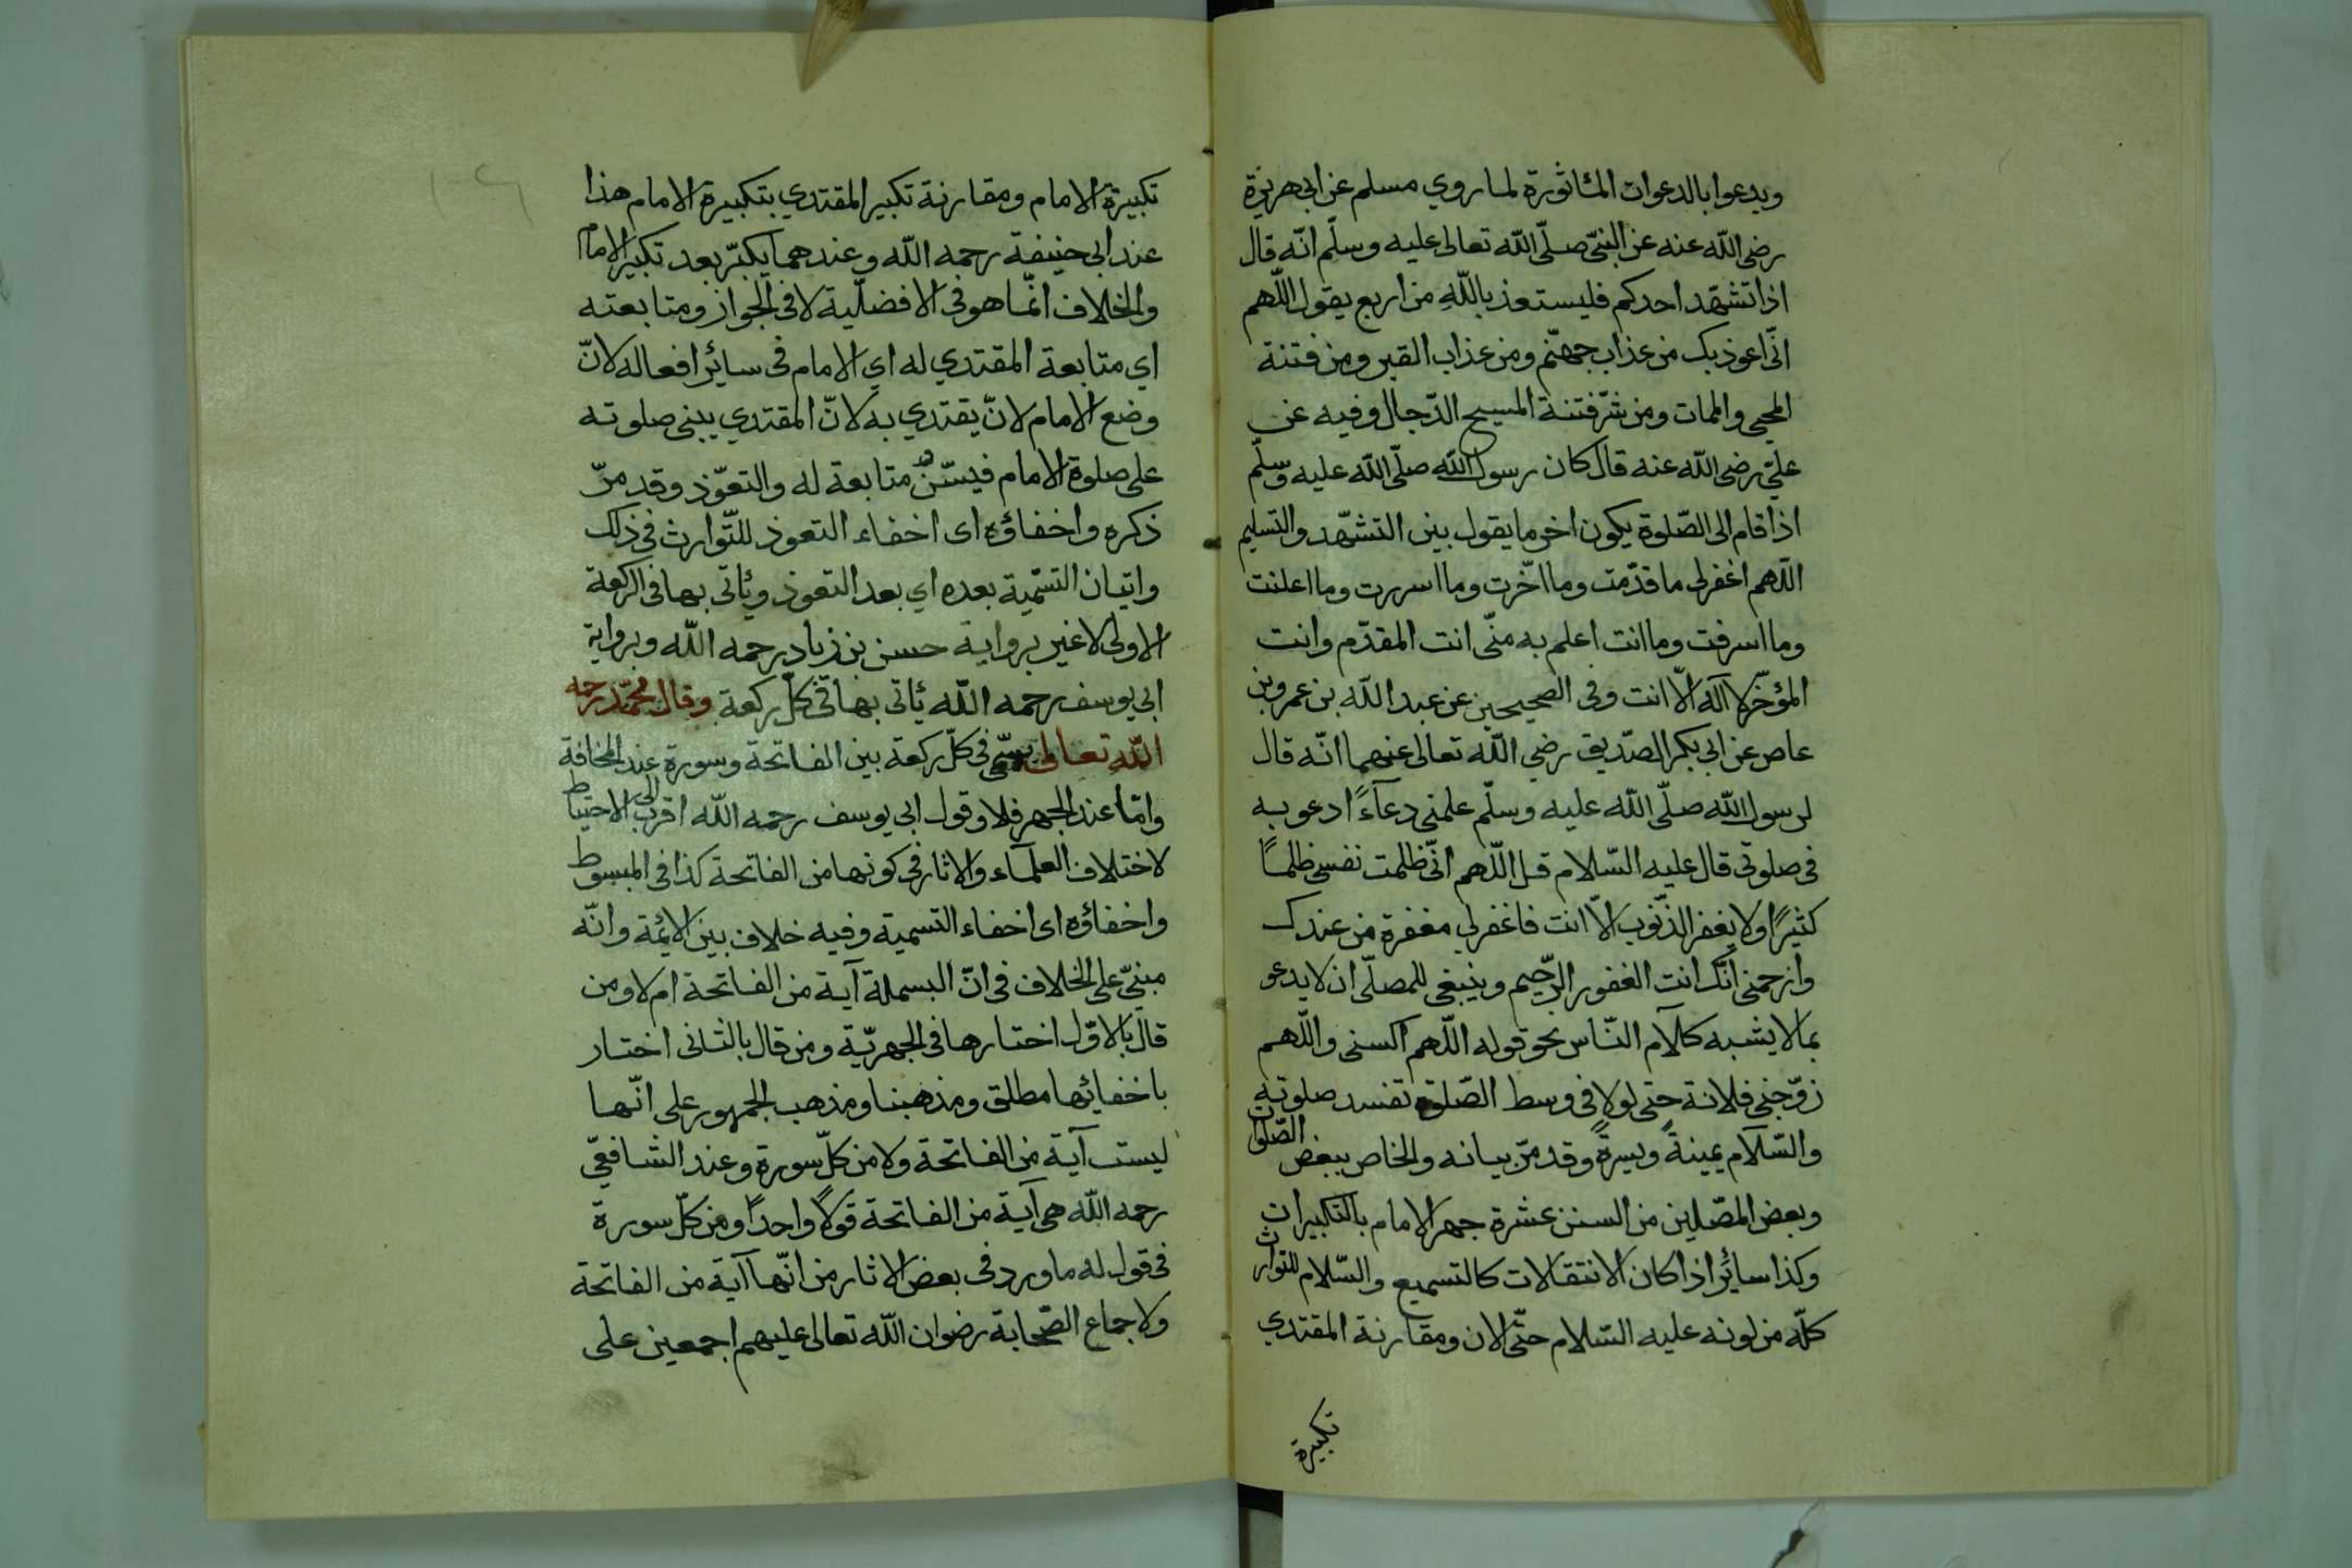 ويدعوا بالدعوات المأثورة لما روي مسلم عن ابى هريرة
رضى الله عنه عن النبىّ صلّى الله تعالى عليه وسلّم انّه قال
اذا تشهّد احدكم فليستعذ بالله من اربع يقول اللّهم
انّى اعوذ بك من عذاب جهنّم ومن عذاب القبر ومن فتنة
المحيى والممات ومن شرّ فتنة المسيح الدّجال وفيه عن
علىّ رضى الله عنه قال كان رسول الله صلّى الله عليه وسلّم
اذا قام الى الصّلوة يكون اخر ما يقول بين التشهّد والتسليم
اللّهم اغفرلى ما قدّمت وما اخّرت وما اسررت وما اعلنت
وما اسرفت وما انت اعلم به منّى انت المقدّم وانت
المؤخّر لا اله الّا انت وفى الصحيحين عن عبد الله بن عمرو بن
عاص عن ابى بكر الصّديق رضي الله تعالى عنهما انّه قال
لرسول الله صلّى الله عليه وسلّم علمنى دعاءً ادعو به
فى صلوتى قال عليه السّلام قل اللّهم انّى ظلمت نفسى ظلماً
كثيرًا ولا يغفر الذّنوب الّا انت فاغفرلي مغفرة من عندك
وارحمنى انّك انت الغفور الرّحيم وينبغى للمصلّى ان لا يدعو
بما لا يشبه كلام النّاس نحو قوله اللّهم اكسنى واللّهم
زوّجنى فلانة حتى لو لا فى وسط الصّلوة تفسد صلوته
والسّلام يمينةً ويسرةً وقد مرّ بيانه والخاص ببعض الصّلوات
وبعض المصّلين من السنن عشرة جهر الامام بالتكبيرات
وكذا سائر اذا كان الانتقالات كالتسميع والسّلام للتوارث
كلّه من لونه عليه السّلام حتّى الان ومقارنة المقتدي
تكبيرة
تكبيرة الامام ومقارنة تكبير المقتدي بتكبيرة الامام هذا
عند ابى حنيفة رحمه الله وعندهما يكبّر بعد تكبير الامام
والخلاف انّما هو فى الافضلية لا فى الجواز ومتابعته
اي متابعة المقتدي له اي الامام فى سائر افعاله لانّ
وضع الامام لانّ يقتدي به لانّ المقتدي يبنى صلوته
على صلوة الامام فيسّنّ متابعة له والتعوّذ وقد مرّ
ذكره واخفاؤه اى اخفاء التعوذ للتّوارث فى ذلك
واتيان التسّمية بعده اي بعد التعوذ ويأتى بها فى الركعة
الاولى لا غير برواية حسن بن زياد رحمه الله وبرواية
ابى يوسف رحمه الله يأتى بها فى كلّ ركعة وقال محمّد رحمه
الله تعالى يسمّى فى كلّ ركعة بين الفاتحة وسورة عند المخافة
وامّا عند الجهر فلا وقول ابى يوسف رحمه الله اقرب الى الاحتياط
لاختلاف العلماء والاثار فى كونها من الفاتحة كذا فى المبسوط
واخفاؤه اى اخفاء التسمية وفيه خلاف بين الائمة وانّه
مبنىّ على الخلاف فى انّ البسملة آية من الفاتحة ام لا ومن
قال بالاوّل اختارها فى الجهريّة ومن قال بالثانى اختار
باخفائها مطلق ومذهبنا ومذهب الجمهور على انّها
ليست آية من الفاتحة ولا من كلّ سورة وعند الشافعىّ
رحمه الله هى آية من الفاتحة قولًا واحدًا ومن كلّ سورة
فى قول له ما ورد فى بعض الاثار من انّها آية من الفاتحة
ولاجماع الصّحابة رضوان الله تعالى عليهم اجمعين على